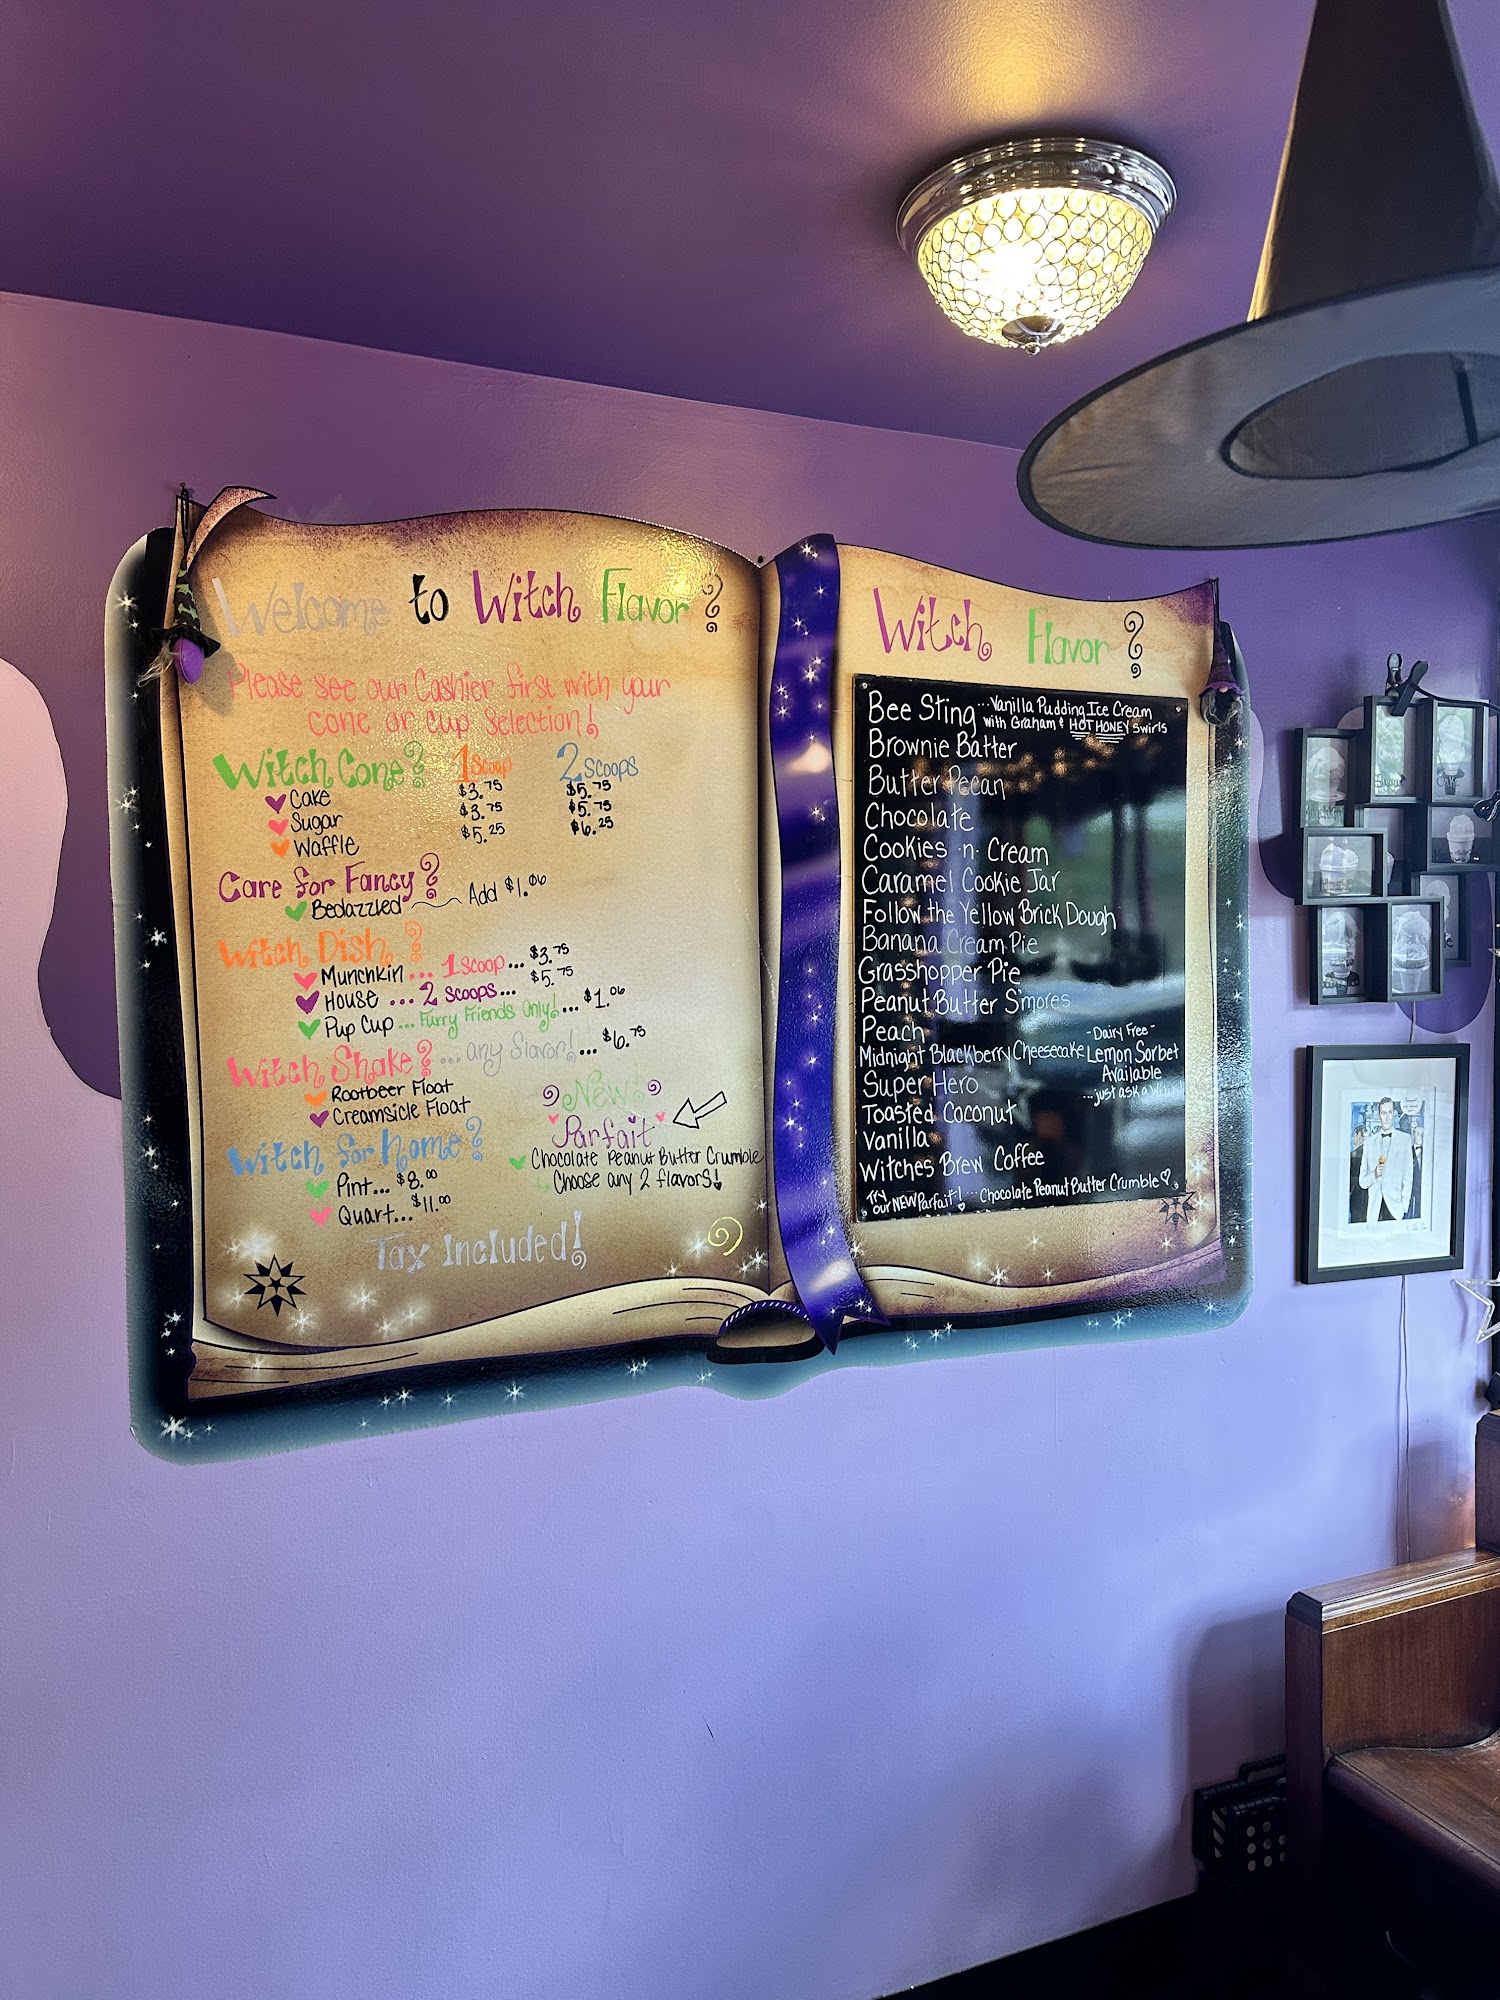 Welcome to Witch Flavor?
Please see our Cashier first with your
cone or cup selection!
Witch Cone? 1 Scoop 2 Scoops
Cake $3.75 $5.75
Sugar $3.75 $5.75
Waffle $5.25 $6.25
Care for Fancy?
Bedazzled Add $1.06
Witch Dish?
Munchkin... 1 Scoop... $3.75
House ... 2 Scoops... $5.75
Pup Cup... Furry Friends Only!... $1.06
Witch Shake? ... any flavor!... $6.75
Rootbeer Float
Creamsicle Float
Witch for home?
Pint... $8.00
Quart... $11.00
New!
Parfait
Chocolate Peanut Butter Crumble
Choose any 2 flavors!
Tax Included!
Witch Flavor?
Bee Sting ...Vanilla Pudding Ice Cream
with Graham & HOT HONEY Swirls
Brownie Batter
Butter Pecan
Chocolate
Cookies -n- Cream
Caramel Cookie Jar
Follow the Yellow Brick Dough
Banana Cream Pie
Grasshopper Pie
Peanut Butter S'mores
Peach
Midnight Blackberry Cheesecake
Super Hero
Toasted Coconut
Vanilla
Witches Brew Coffee
-Dairy Free-
Lemon Sorbet
Available
...just ask a
Try our NEW Parfait!... Chocolate Peanut Butter Crumble